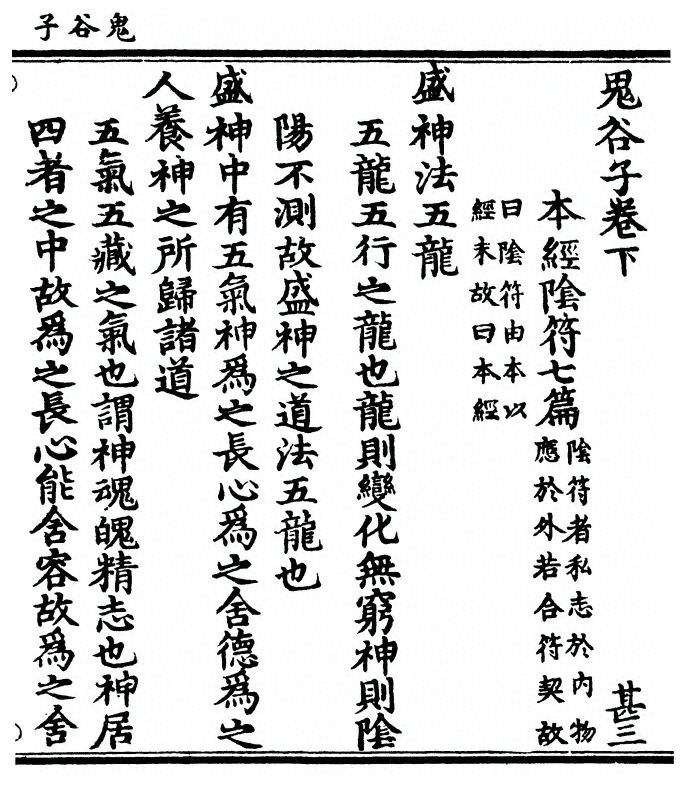 鬼谷子
鬼谷子卷下 甚三
本經陰符七篇
陰符者私志於內物
應於外若合符契故
曰陰符由本以
經末故曰本經
盛神法五龍
五龍五行之龍也龍則變化無窮神則陰
陽不測故盛神之道法五龍也
盛神中有五氣神爲之長心爲之舍德爲之
人養神之所歸諸道
五氣五藏之氣也謂神魂魄精志也神居
四者之中故爲之長心能舍容故爲之舍